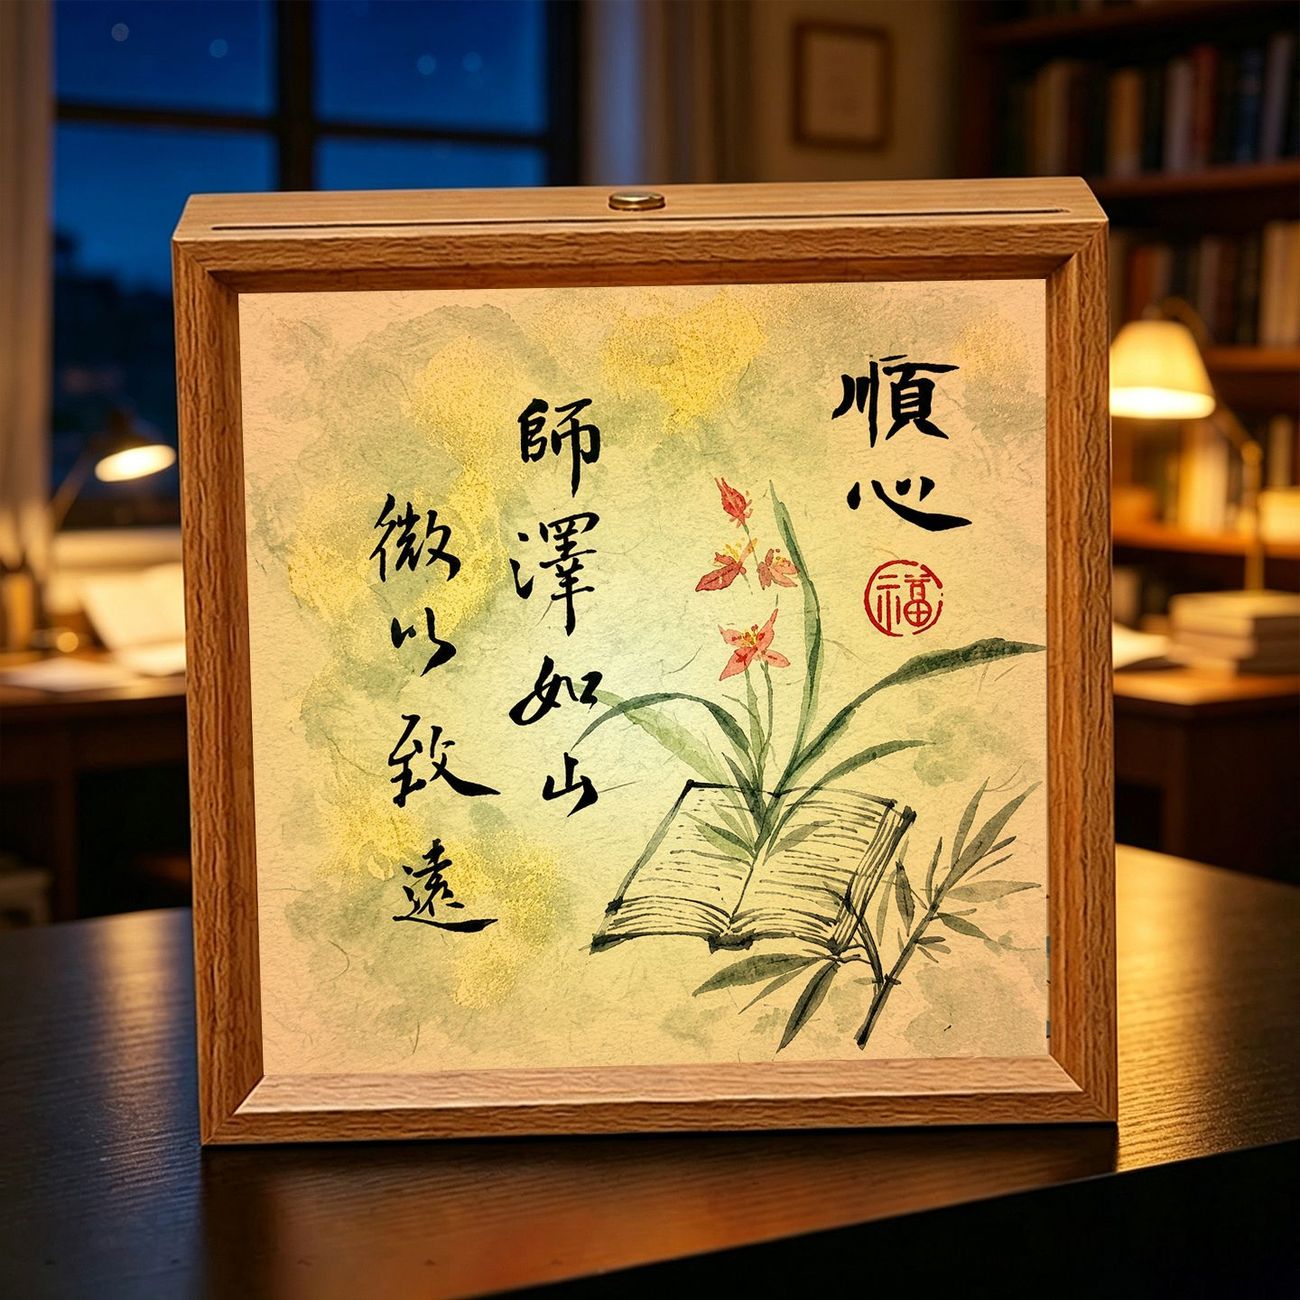 順心
福
師澤如山
微以致遠